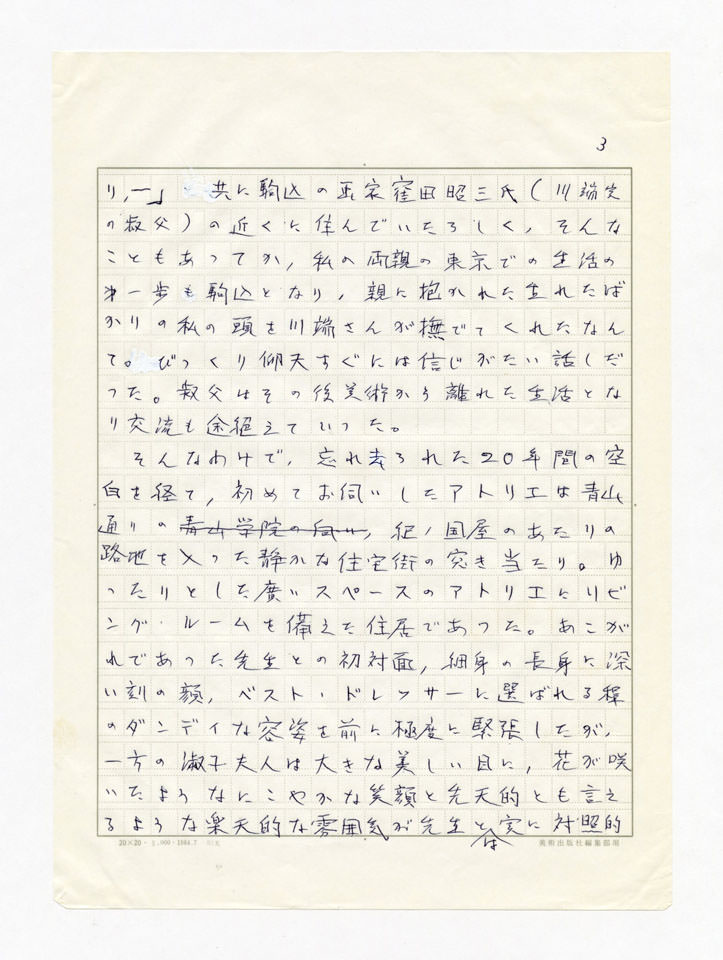 3
り、ー」共に駒込の画家窪田昭三氏(川端実
の叔父)の近くに住んでいたらしく、そんな
こともあってか、私の両親の東京での生活の
オ一歩も駒込となり、親に抱かれた生れたば
かりの私の頭を川端さんが撫でてくれたなん
て。びっくり仰天すぐには信じがたい話しだ
った。叔父はその後美術から離れた生活とな
り交流も途絶えていった。
そんなわけで、忘れ去られた20年間の空
白を経て、初めてお伺いしたアトリエは青山
通りの青山学院の向い、紀ノ国屋のあたりの
路地を入った静かな住宅街の突き当たり。ゆ
ったりとした広いスペースのアトリエにリビ
ング・ルームを備えた住居であった。あこが
れであった先生との初対面、細身の長身に深
い刻の顔、ベスト・ドレッサーに選ばれる程
のダンディな容姿を前に極度に緊張したが、
一方の淑子夫人は大きな美しい目に、花が咲
いたようなにこやかな笑顔と先天的とも言え
るような楽天的な雰囲気が先生とは実に対照的
20×20・ 1984.7
美術出版社編集部用